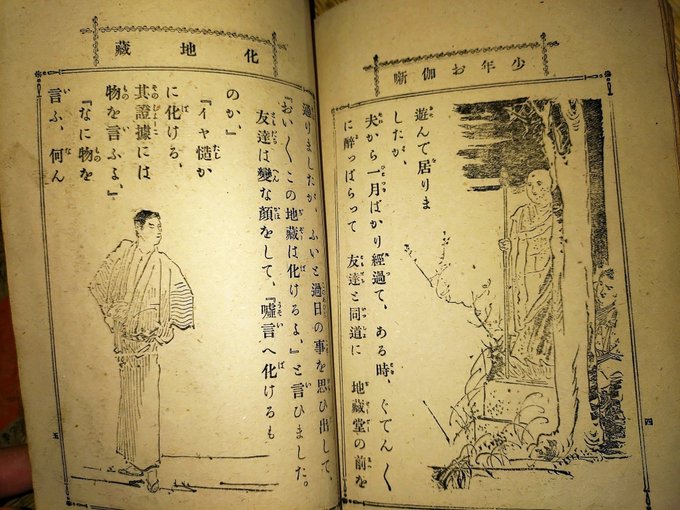 少年お伽噺
遊んで居りま
したが、
夫から一月ばかり經過て、ある時、ぐでん〱
に醉っぱらって 友達と同道に 地藏堂の前を
四
化地藏
通りましたが、ふいと過日の事を思ひ出して、
『おい〱この地藏は化けるよ。』と言ひました。
友達は變な顏をして、『嘘言へ化けるも
のか。』
『イヤ慥か
に化ける、
其證據には
物を言ふよ。』
『なに物を
言ふ、何ん
五